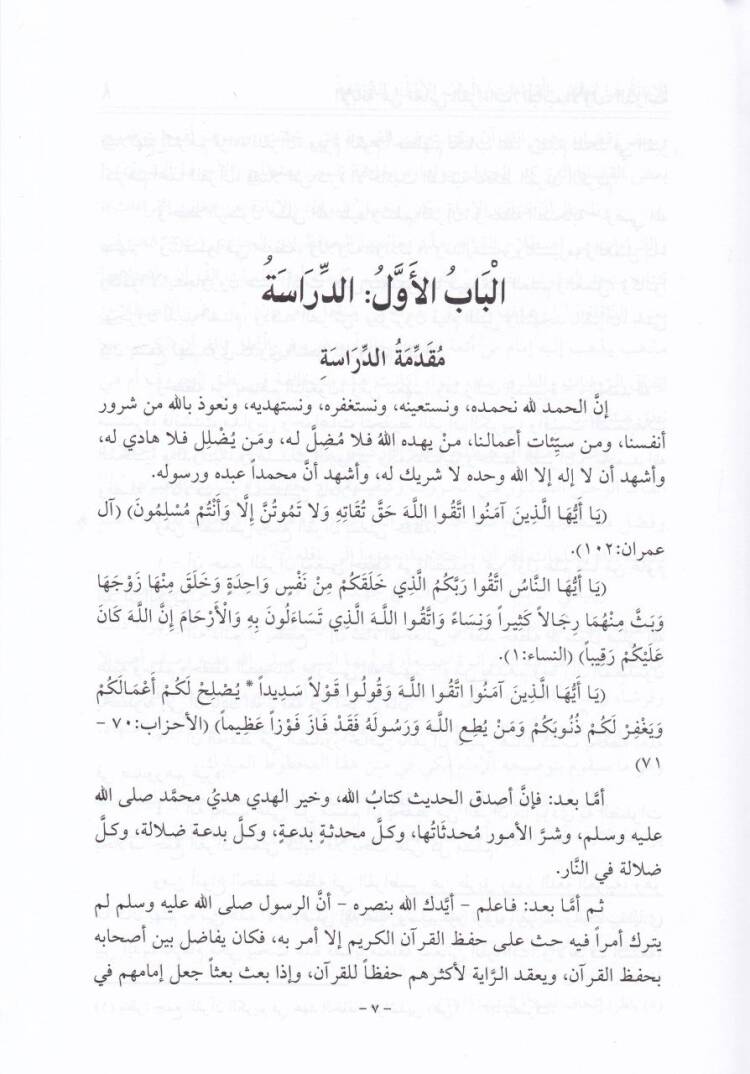 الْبَابُ الأَوَّلُ: الدِّرَاسَةُ
مُقَدِّمَةُ الدِّرَاسَةِ
إنَّ الحمد لله نحمده، ونستعينه، ونستغفره، ونستهديه، ونعوذ بالله من شرور
أنفسنا، ومن سيِّئات أعمالنا، منْ يهده اللهُ فلا مُضِلَّ له، ومَن يُضْلِل فلا هادي له،
وأشهد أن لا إله إلا الله وحده لا شريك له، وأشهد أنَّ محمداً عبده ورسوله.
(يَا أَيُّهَا الَّذِينَ آمَنُوا اتَّقُوا اللَّهَ حَقَّ تُقَاتِهِ وَلا تَمُوتُنَّ إِلَّا وَأَنْتُمْ مُسْلِمُونَ) (آل
عمران:١٠٢).
(يَا أَيُّهَا النَّاسُ اتَّقُوا رَبَّكُمُ الَّذِي خَلَقَكُمْ مِنْ نَفْسٍ وَاحِدَةٍ وَخَلَقَ مِنْهَا زَوْجَهَا
وَبَثَّ مِنْهُمَا رِجَالاً كَثِيراً وَنِسَاءً وَاتَّقُوا اللَّهَ الَّذِي تَسَاءَلُونَ بِهِ وَالْأَرْحَامَ إِنَّ اللَّهَ كَانَ
عَلَيْكُمْ رَقِيباً) (النساء:١).
(يَا أَيُّهَا الَّذِينَ آمَنُوا اتَّقُوا اللَّهَ وَقُولُوا قَوْلاً سَدِيداً * يُصْلِحْ لَكُمْ أَعْمَالَكُمْ
وَيَغْفِرْ لَكُمْ ذُنُوبَكُمْ وَمَنْ يُطِعِ اللَّهَ وَرَسُولَهُ فَقَدْ فَازَ فَوْزاً عَظِيماً) (الأحزاب:٧٠ –
٧١)
أمَّا بعد: فإنَّ أصدق الحديث كتابُ الله، وخير الهدي هديُ محمَّد صلى الله
عليه وسلم، وشرَّ الأمور مُحدثَاتُها، وكلَّ محدثةٍ بدعةٍ، وكلَّ بدعة ضلالة، وكلَّ
ضلالة في النَّار.
ثم أمَّا بعد: فاعلم – أيَّدك الله بنصره – أنَّ الرسول صلى الله عليه وسلم لم
يترك أمراً فيه حث على حفظ القرآن الكريم إلا أمر به، فكان يفاضل بين أصحابه
بحفظ القرآن، ويعقد الرَّاية لأكثرهم حفظاً للقرآن، وإذا بعث بعثاً جعل إمامهم في
– ٧ –